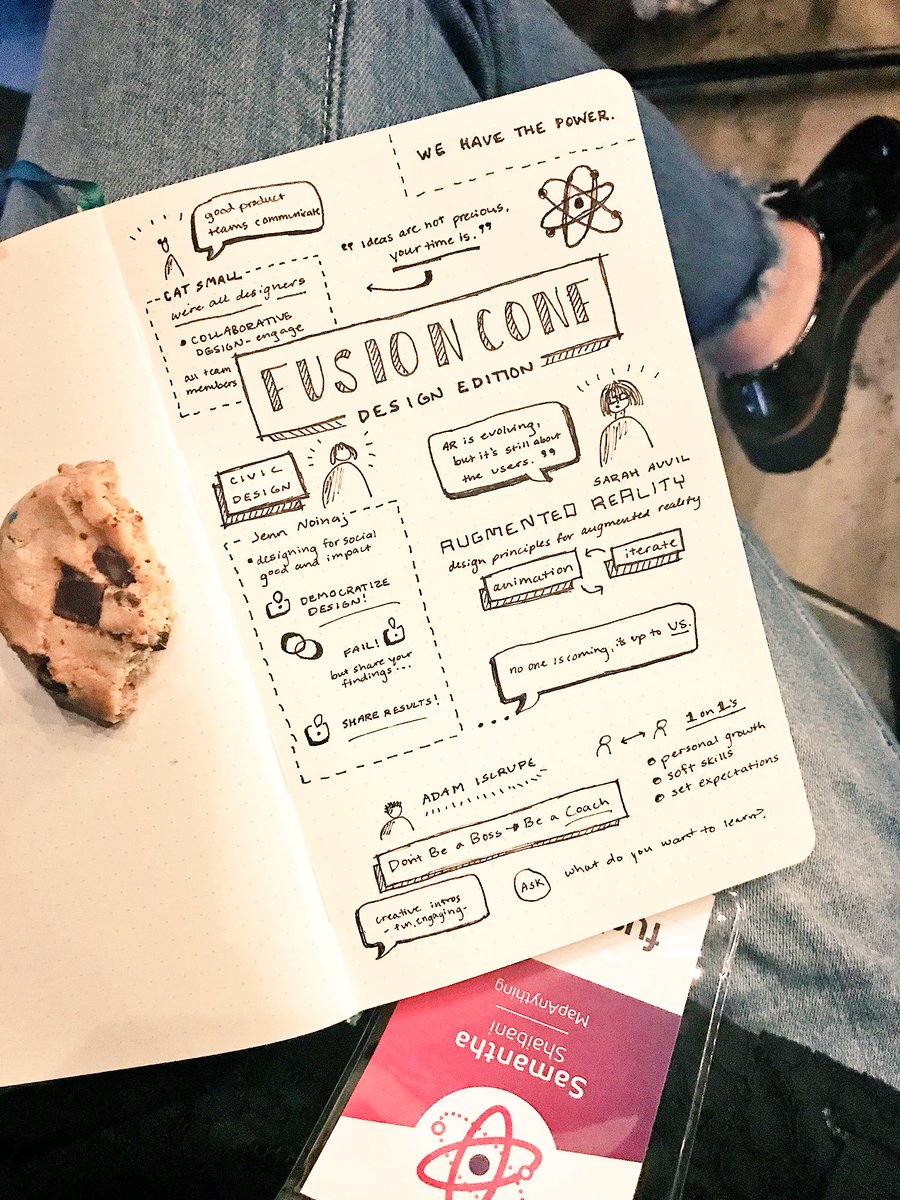 WE HAVE THE POWER.
good product
teams communicate
"Ideas are not precious,
your time is."
CAT SMALL
we're all designers
• COLLABORATIVE
DESIGN - engage
all team
members
FUSION CONF
DESIGN EDITION
CIVIC
DESIGN
Jenn Noinaj
• designing for social
good and impact
DEMOCRATIZE
DESIGN!
FAIL!
but share your
findings...
SHARE RESULTS!
AR is evolving,
but it's still about
the users."
SARAH AUVIL
AUGMENTED REALITY
design principles for augmented reality
animation
iterate
no one is coming, it's up to US.
1 on 1's
• personal growth
• soft skills
• set expectations
ADAM ISLRUPE
Don't Be a Boss → Be a Coach
ASK
what do you want to learn?
creative intros
- fun, engaging -
fus
Samantha
Shaibani
MapAnything